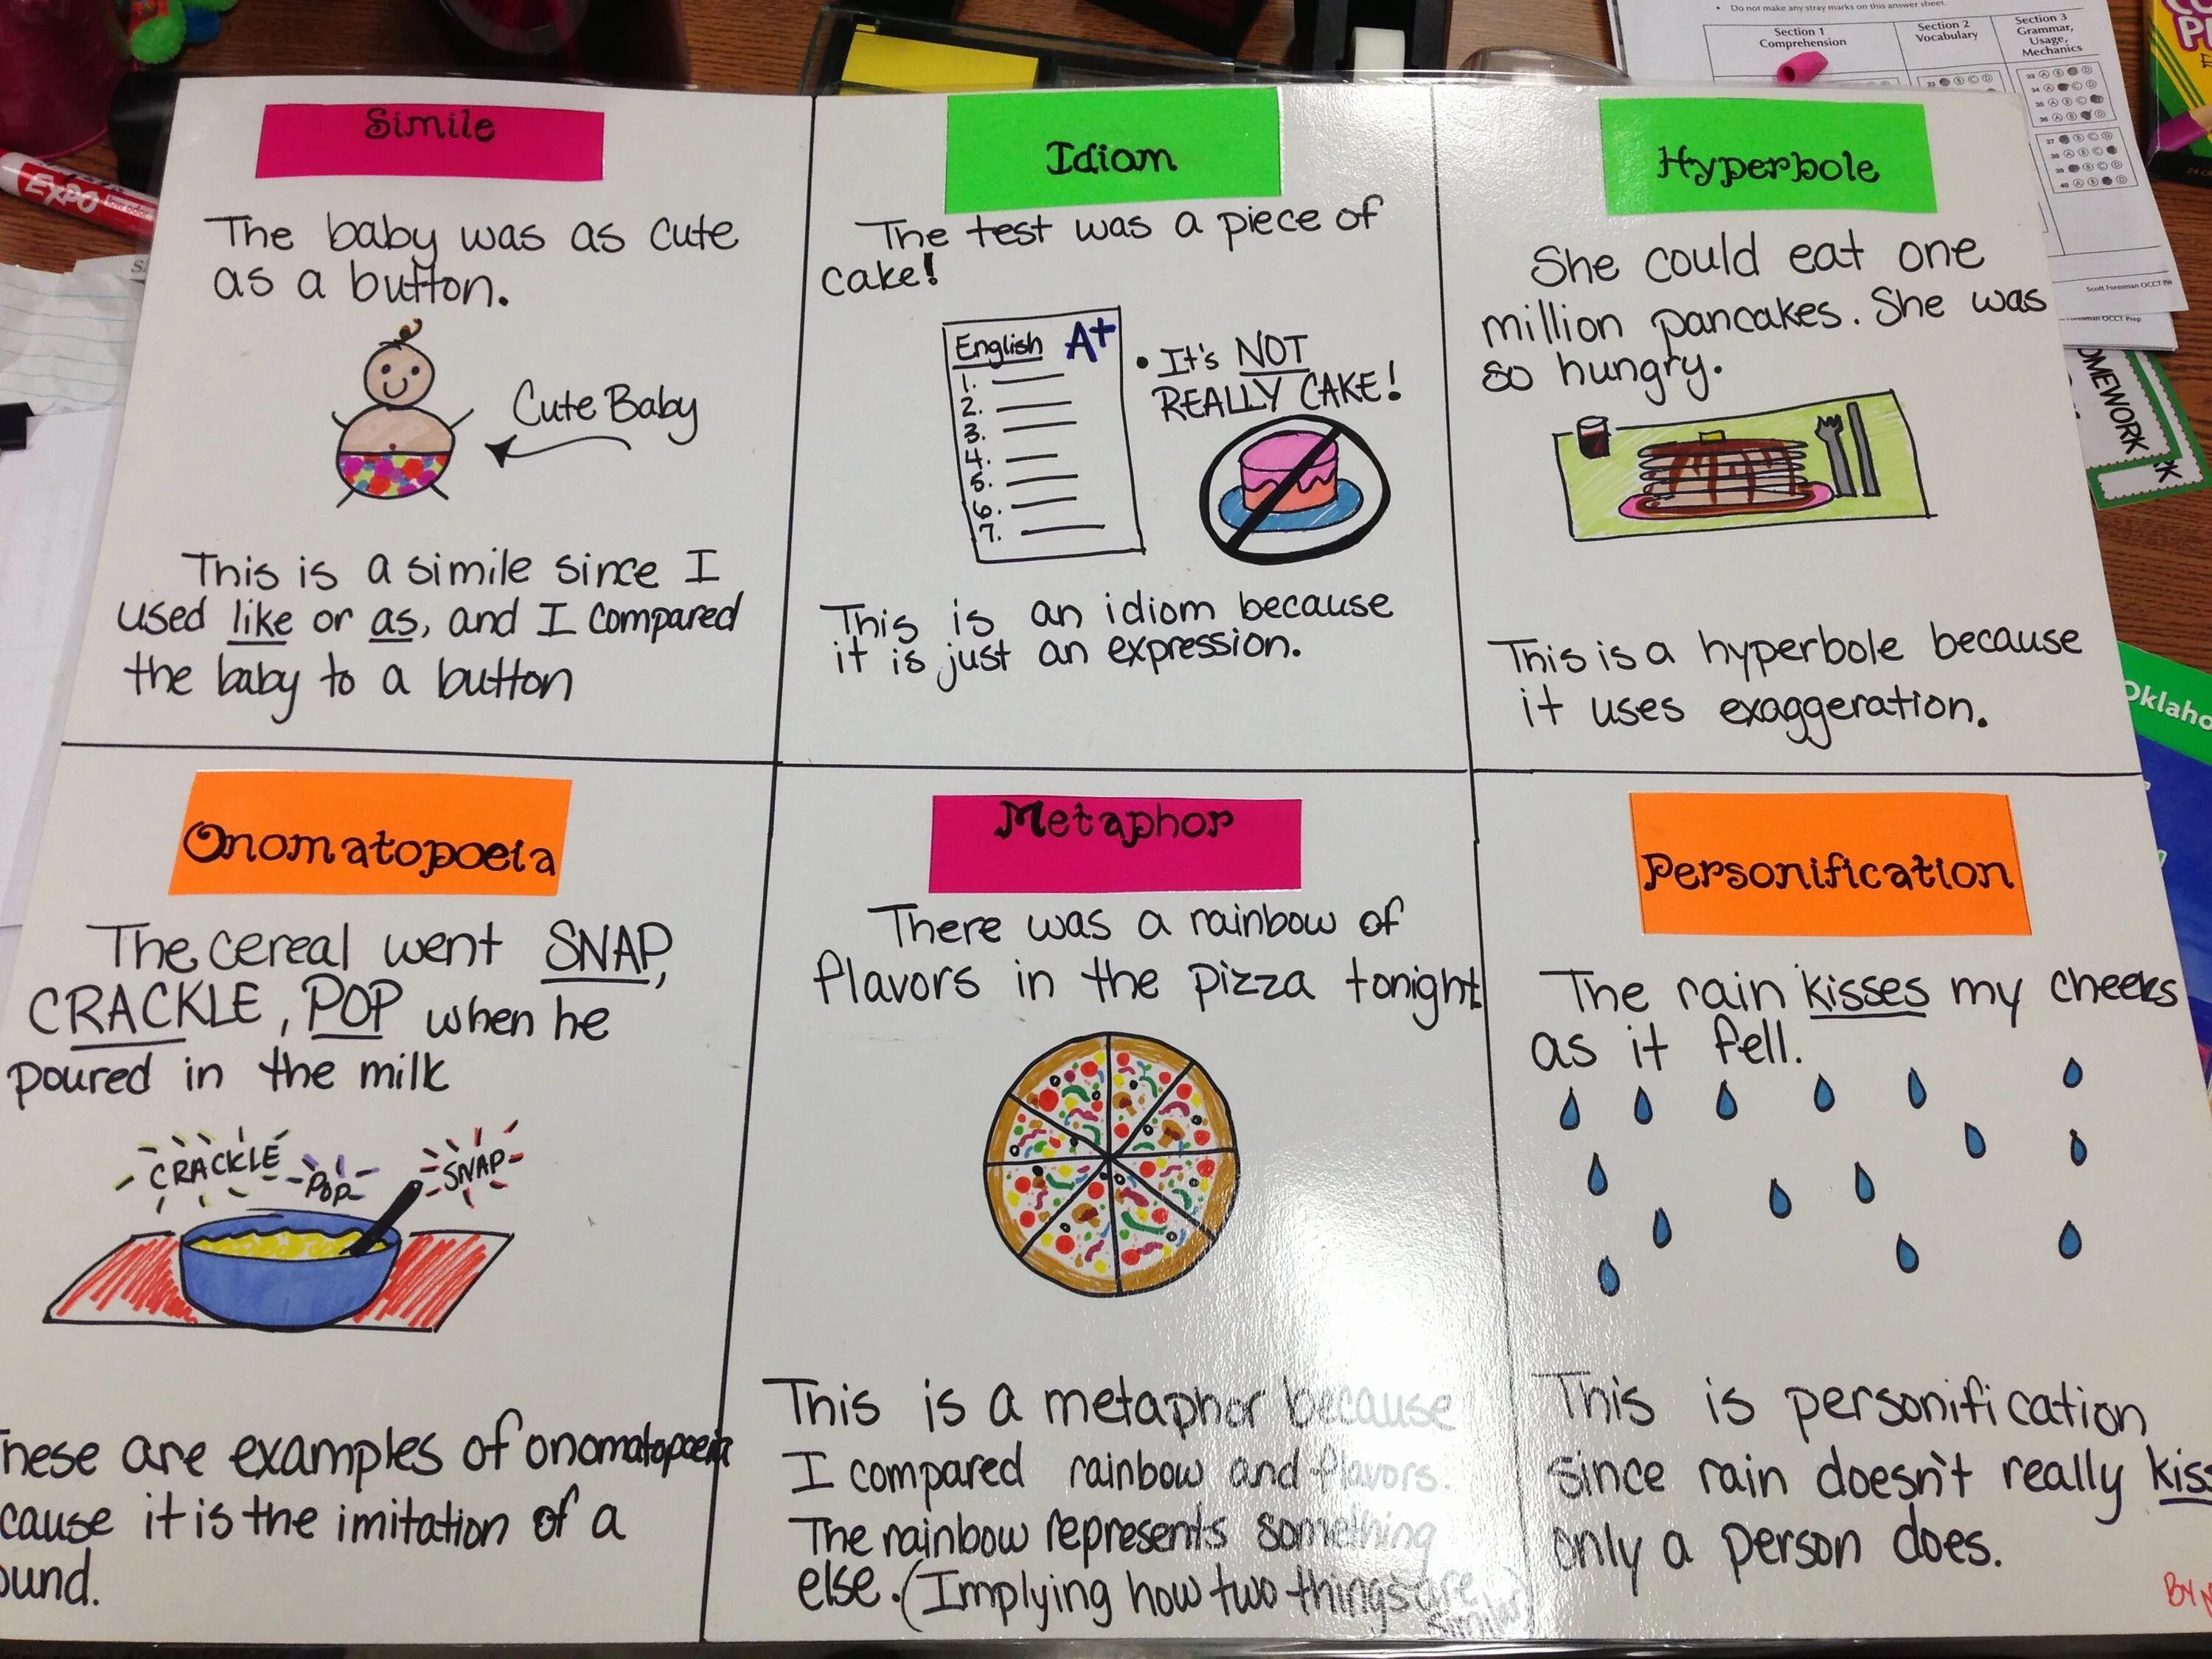 Do not make any stray marks on this answer sheet.
Section 1
Comprehension
Section 2
Vocabulary
Section 3
Grammar,
Usage,
Mechanics
EXPO
low odor
Scott Foresman OCCT
OCCT Prep
OMEWORK
Oklaho
Simile
The baby was as cute
as a button.
Cute Baby
This is a simile since I
used like or as, and I compared
the baby to a button
Idiom
The test was a piece of
cake!
English A+
1.
2.
3.
4.
5.
6.
7.
• It's NOT
REALLY CAKE!
This is an idiom because
it is just an expression.
Hyperbole
She could eat one
million pancakes. She was
so hungry.
This is a hyperbole because
it uses exaggeration.
Onomatopoeia
The cereal went SNAP,
CRACKLE, POP when he
poured in the milk
CRACKLE
POP
SNAP
hese are examples of onomatopoeia
cause it is the imitation of a
ound.
Metaphor
There was a rainbow of
flavors in the pizza tonight
This is a metaphor because
I compared rainbow and flavors.
The rainbow represents something
else. (Implying how two things are
similar)
Personification
The rain kisses my cheeks
as it fell.
This is personification
since rain doesn't really kiss
only a person does.
BY